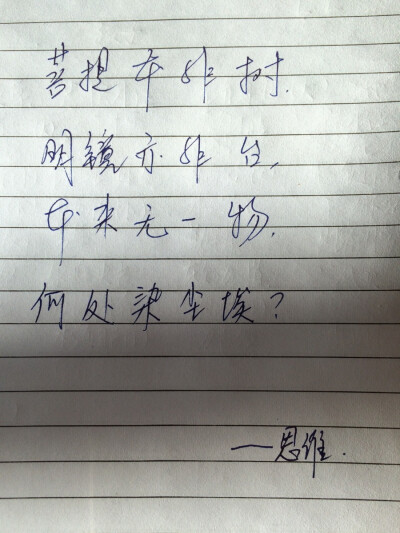 菩提本非树.
明镜亦非台,
本来无一物.
何处染尘埃?
—思维.